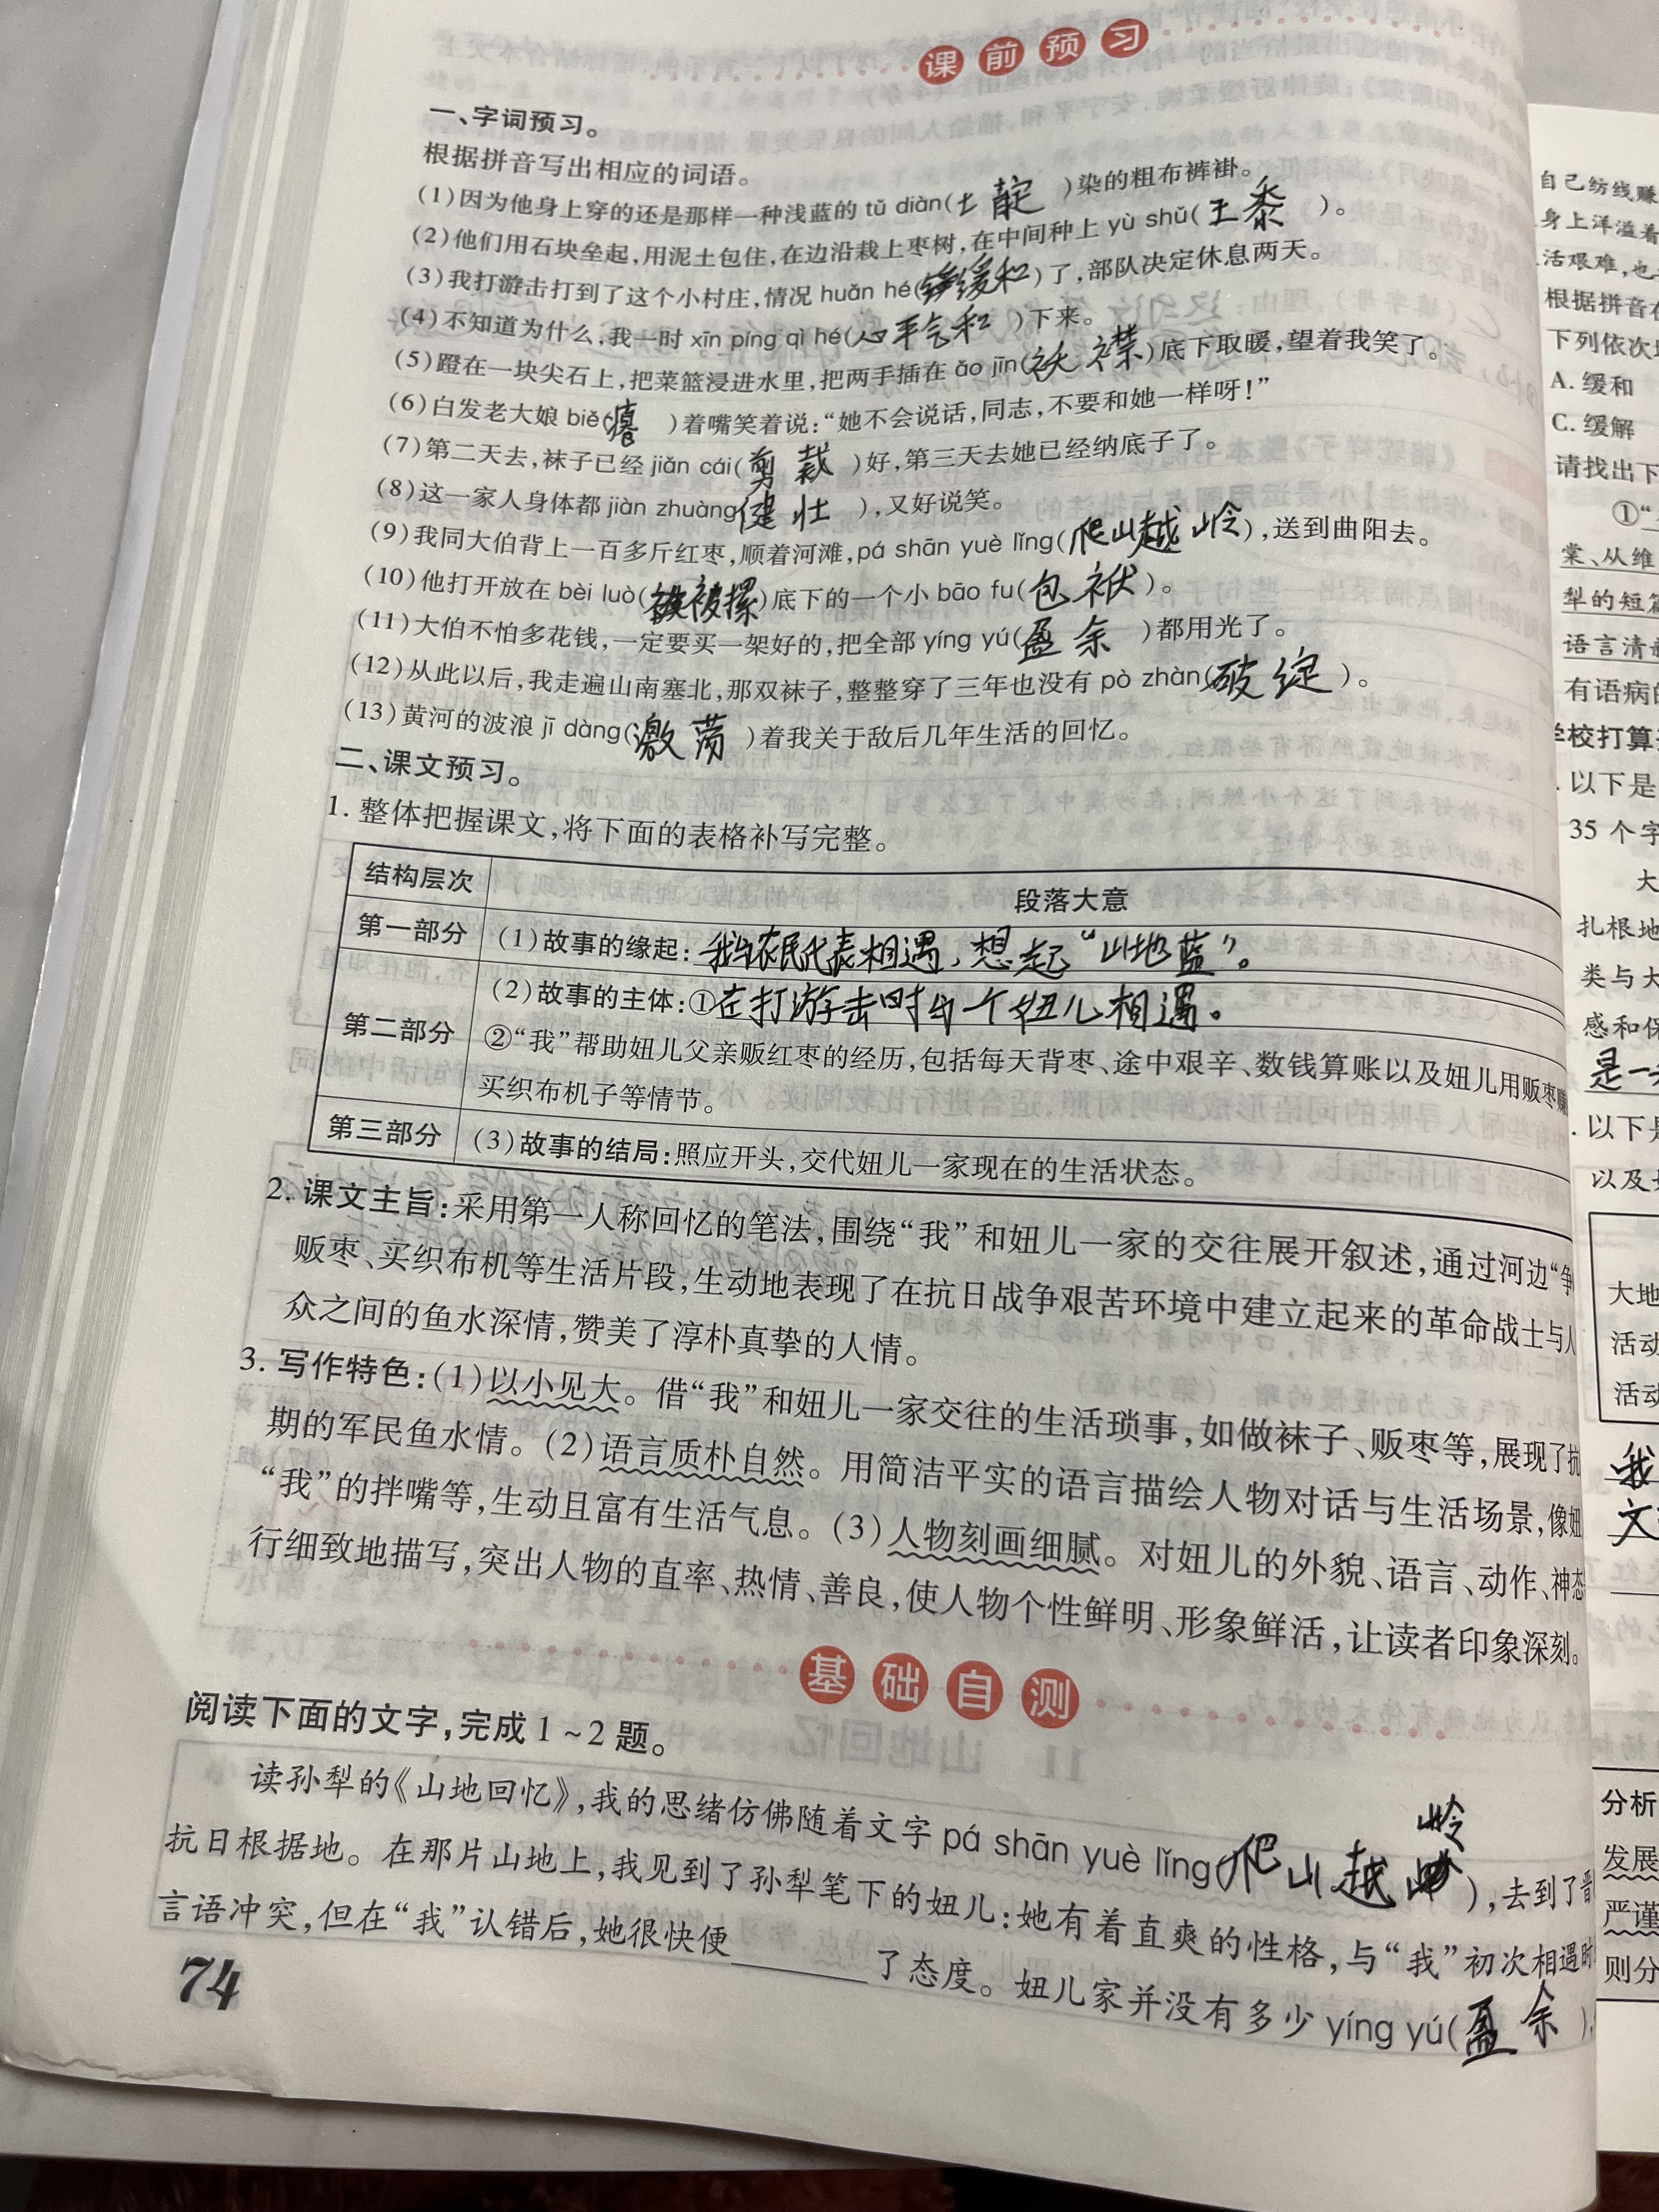 课前预习
一、字词预习。
根据拼音写出相应的词语。
(1)因为他身上穿的还是那样一种浅蓝的 tǔ diàn(土靛)染的粗布裤褂。
(2)他们用石块垒起,用泥土包住,在边沿栽上枣树,在中间种上 yù shǔ(玉黍)。
(3)我打游击打到了这个小村庄,情况 huǎn hé(缓和)了,部队决定休息两天。
(4)不知道为什么,我一时 xīn píng qì hé(心平气和)下来。
(5)蹬在一块尖石上,把菜篮浸进水里,把两手插在 ǎo jīn(袄襟)底下取暖,望着我笑了。
(6)白发老大娘 biě( )着嘴笑着说:“她不会说话,同志,不要和她一样呀!”
(7)第二天去,袜子已经 jiǎn cái(剪裁)好,第三天去她已经纳底子了。
(8)这一家人身体都 jiàn zhuàng(健壮),又好说笑。
(9)我同大伯背上一百多斤红枣,顺着河滩,pá shān yuè lǐng(爬山越岭),送到曲阳去。
(10)他打开放在 bèi luò(被摞)底下的一个小 bāo fu(包袱)。
(11)大伯不怕多花钱,一定要买一架好的,把全部 yíng yú(盈余)都用光了。
(12)从此以后,我走遍山南塞北,那双袜子,整整穿了三年也没有 pò zhàn(破绽)。
(13)黄河的波浪 jī dàng(激荡)着我关于敌后几年生活的回忆。
二、课文预习。
1. 整体把握课文,将下面的表格补写完整。
结构层次 段落大意
第一部分 (1)故事的缘起:我与农民代表相遇,想起“山地蓝”。
第二部分 (2)故事的主体:①在打游击时与一个妞儿相遇。
②“我”帮助妞儿父亲贩红枣的经历,包括每天背枣、途中艰辛、数钱算账以及妞儿用贩枣
买织布机子等情节。
第三部分 (3)故事的结局:照应开头,交代妞儿一家现在的生活状态。
2. 课文主旨:采用第一人称回忆的笔法,围绕“我”和妞儿一家的交往展开叙述,通过河边“争
贩枣、买织布机等生活片段,生动地表现了在抗日战争艰苦环境中建立起来的革命战士与人
众之间的鱼水深情,赞美了淳朴真挚的人情。
3. 写作特色:(1)以小见大。借“我”和妞儿一家交往的生活琐事,如做袜子、贩枣等,展现了抗
期的军民鱼水情。(2)语言质朴自然。用简洁平实的语言描绘人物对话与生活场景,像妞
“我”的拌嘴等,生动且富有生活气息。(3)人物刻画细腻。对妞儿的外貌、语言、动作、神态
行细致地描写,突出人物的直率、热情、善良,使人物个性鲜明、形象鲜活,让读者印象深刻。
基础自测
阅读下面的文字,完成1~2题。
读孙犁的《山地回忆》,我的思绪仿佛随着文字 pá shān yuè lǐng(爬山越岭),去到了
抗日根据地。在那片山地上,我见到了孙犁笔下的妞儿:她有着直爽的性格,与“我”初次相遇时
言语冲突,但在“我”认错后,她很快便______了态度。妞儿家并没有多少 yíng yú(盈余),
74
自己纺线赚
身上洋溢着
活艰难,也
根据拼音在
下列依次
A. 缓和
C. 缓解
请找出下
①“
棠、从维
犁的短篇
语言清
有语病的
学校打算
以下是
35 个字
大
扎根地
类与大
感和保
是一
以下是
以及
大地
活动
活动
我
文
分析
发展
严谨
则分